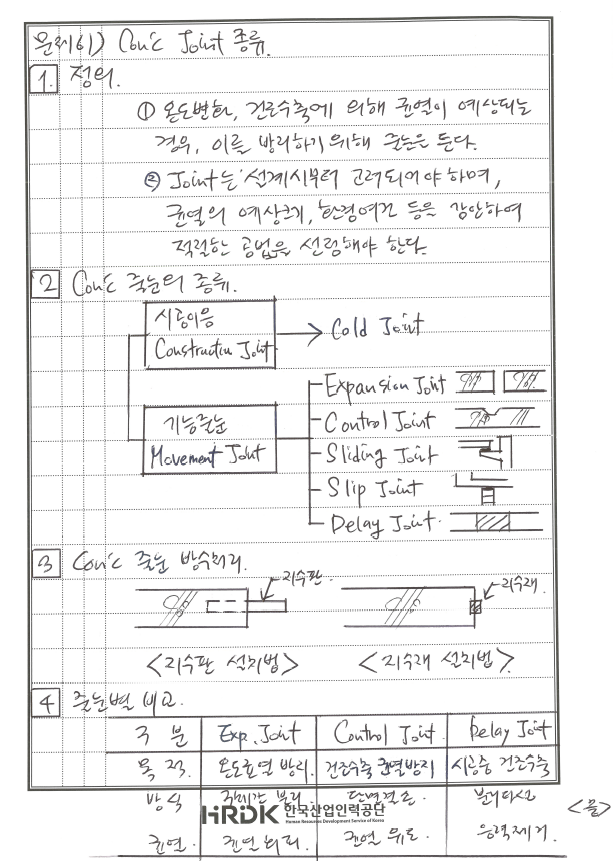 문제61) Con'c Joint 종류.
1. 정의.
① 온도변화, 건조수축에 의해 균열이 예상되는
경우, 이를 방지하기 위해 줄눈을 둔다.
② Joint는 설계시부터 고려되어야 하며,
균열의 예상크기, 환경여건 등을 감안하여
적절한 공법을 선정해야 한다.
2 Con'c 줄눈의 종류.
시공이음
Construction Joint
Cold Joint
기능줄눈
Movement Joint
Expansion Joint
Control Joint
Sliding Joint
Slip Joint
Delay Joint.
3 Con'c 줄눈 방수처리.
지수판.
지수재.
<지수판 설치법> <지수재 설치법>
4 줄눈별 비교.
구 분 Exp. Joint Control Joint. Delay Joint
목 적. 온도균열 방지. 건조수축 균열방지 시공중 건조수축
방식 분리 단면결손.
HRDK 한국산업인력공단
Human Resources Development Service of Korea
<끝>
균열. 균열 균열 유도. 응력제거.